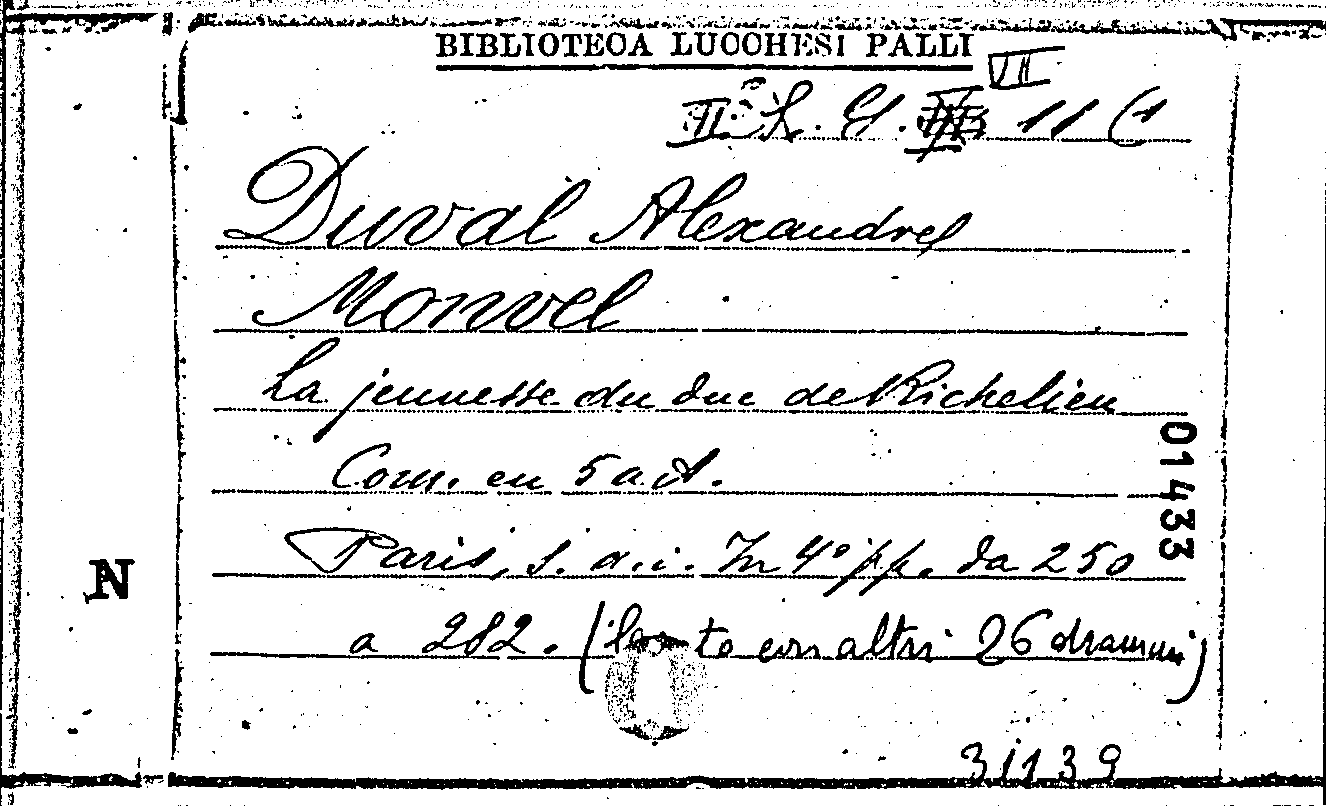 BIBLIOTECA LUCCHESI PALLI
VII
II^a L. G. 11 (1
Duval Alexandre
Monvel
La jeunesse du duc de Richelieu
Com. en 5 act.
01433
Paris, s. a. i. In 4° pp. da 250
N
a 282. (to con altri 26 drammi)
31139